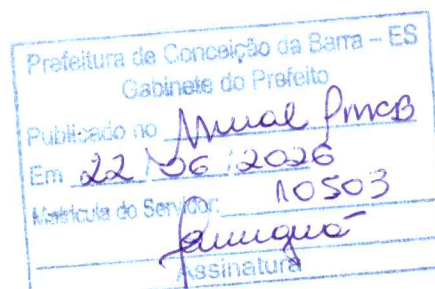 Prefeitura de Conceição da Barra – ES
Gabinete do Prefeito
Publicado no Mural PMCB
Em 22 / 06 / 2026
Matrícula do Servidor: 10503
Assinatura